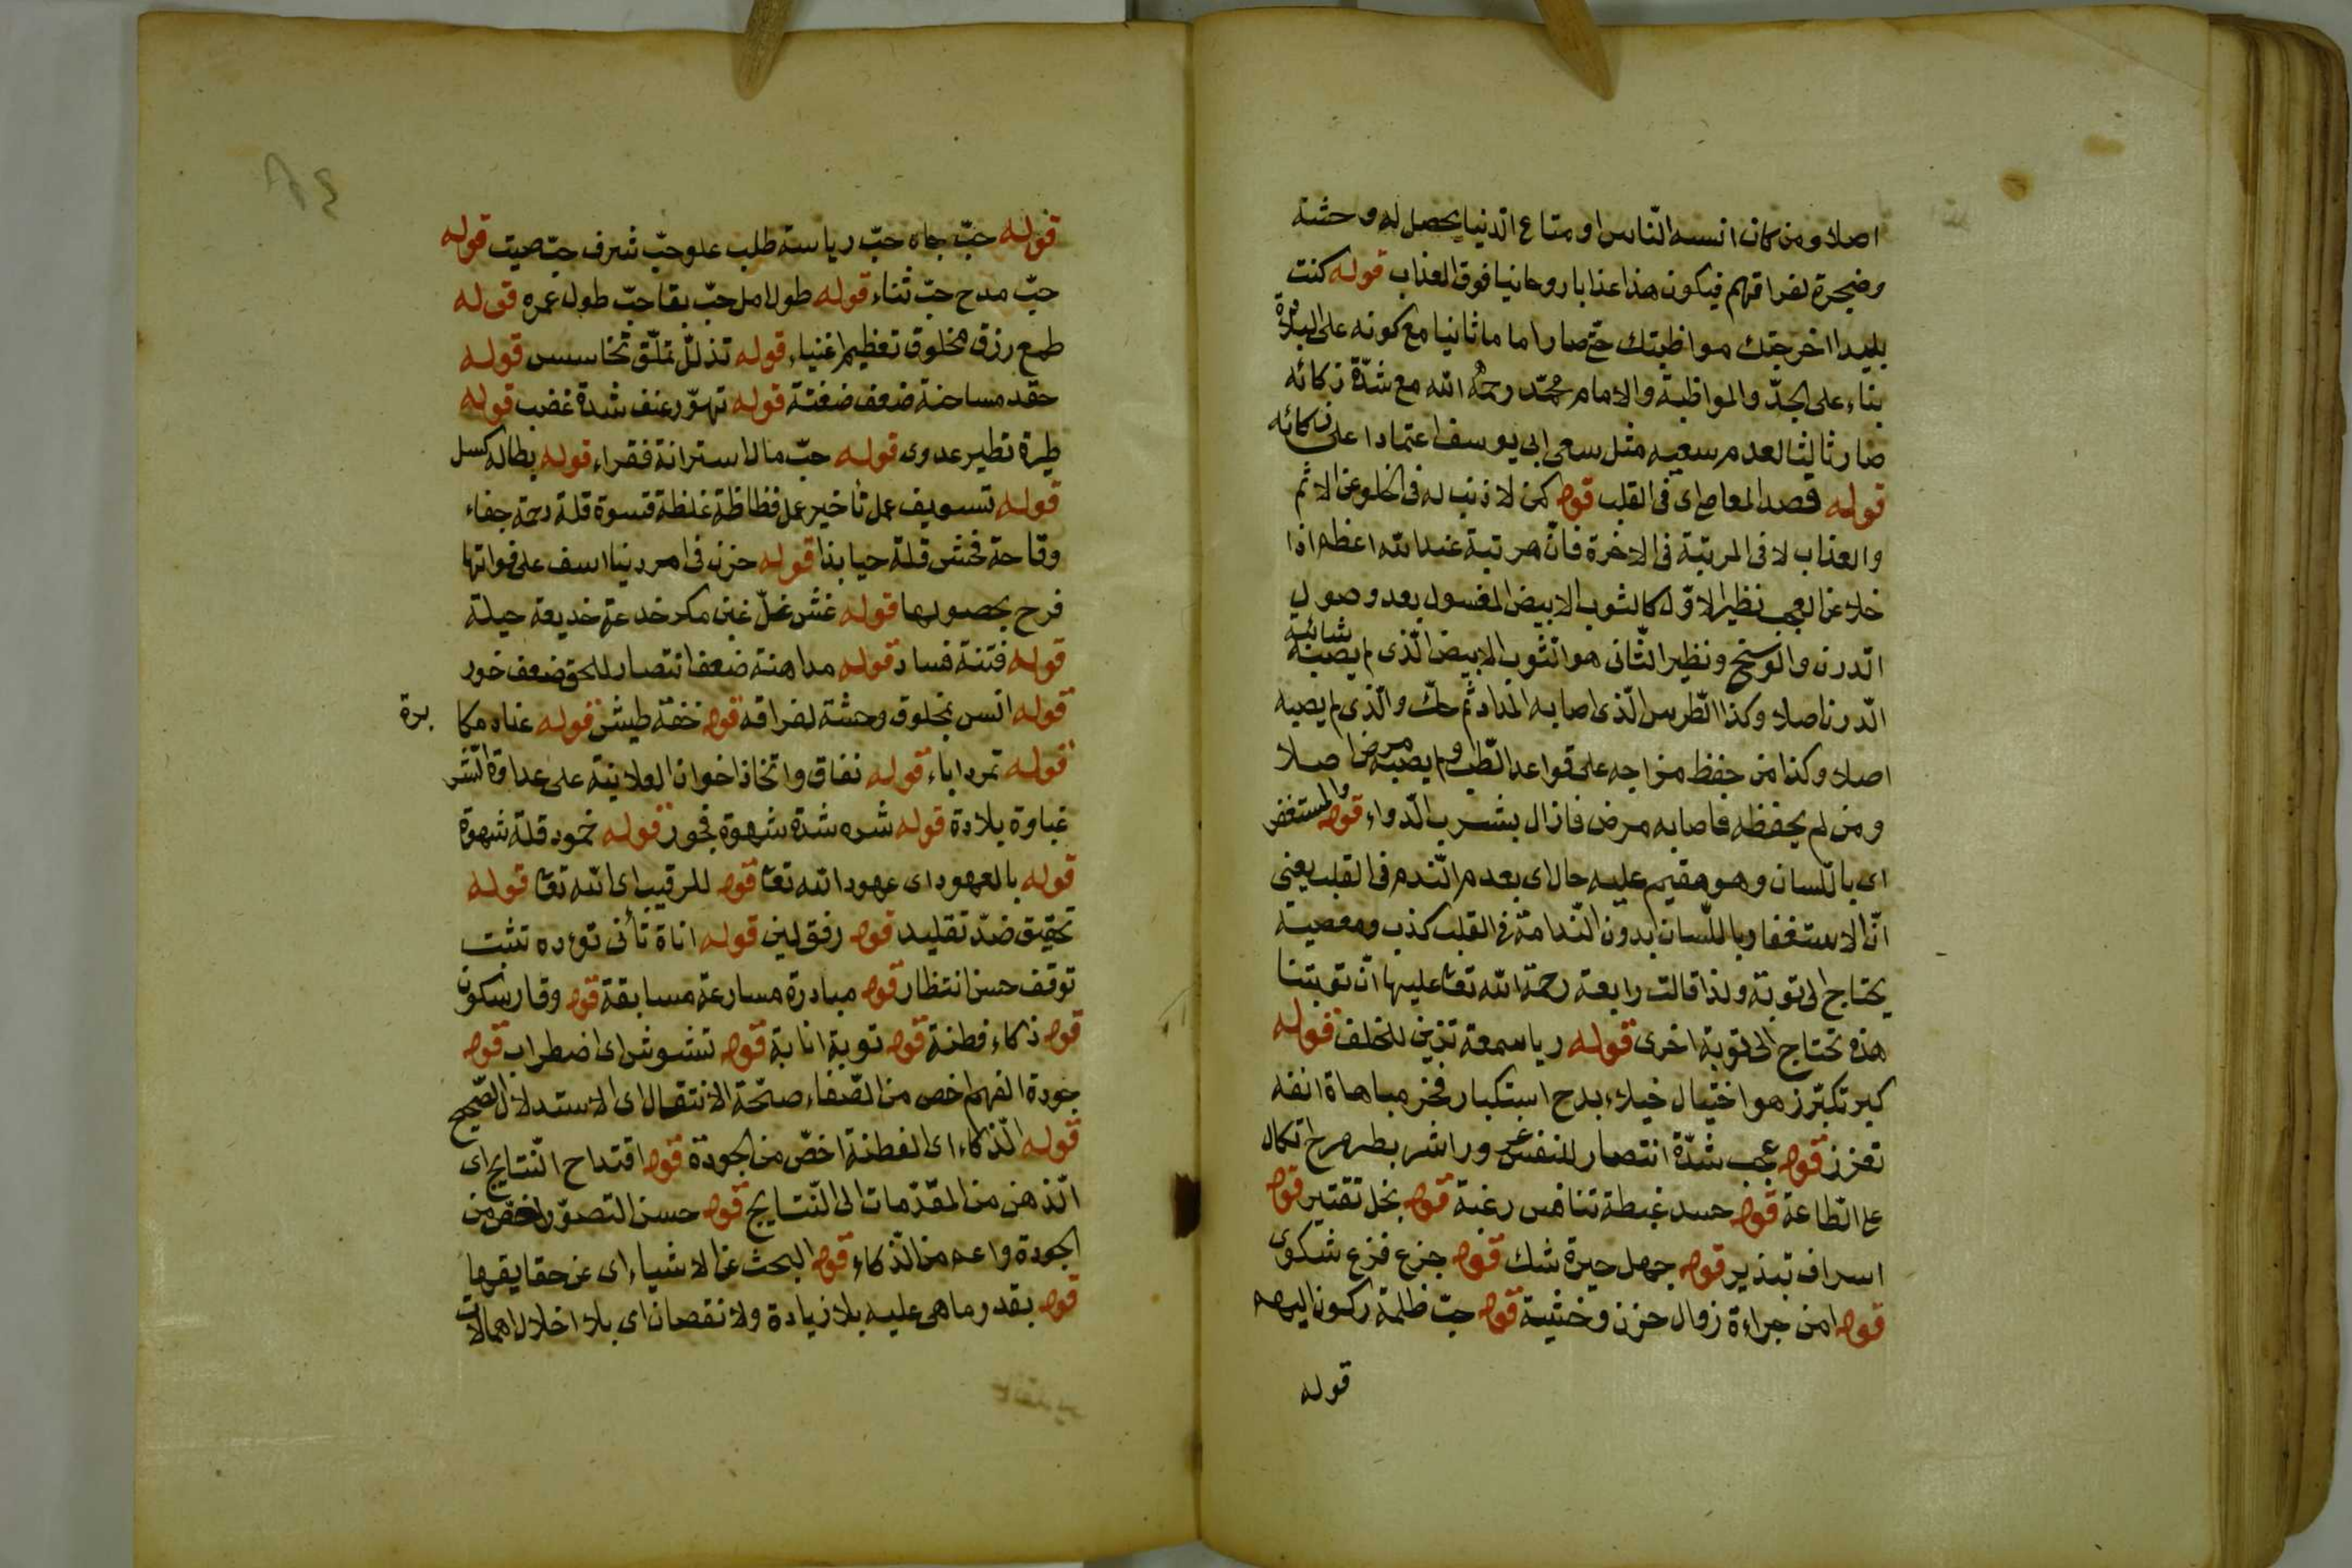 اصلا ومن كان انسه الناس او متاع الدنيا يحصل له وحشة
وضجرة لفراقهم فيكون هذا عذابا روحانيا فوق العذاب قوله كنت
بليدا اخرجتك مواظبتك حتى صار اماما ثانيا مع كونه على البلادة
بناء على الجدّ والمواظبة والامام محمّد رحمه الله مع شدّة ذكائه
صار ثالثا لعدم سعيه مثل سعى ابى يوسف اعتمادا على ذكائه
قوله قصد المعاصى اى فى القلب قوله كمن لا ذنب له فى الخلو عن الاثم
والعذاب لا فى المرتبة فى الاخرة فانّ مرتبة عند الله اعظم اذا
خلا عن العجب نظير الاوّل كالثوب الابيض المغسول بعد وصول
الدرن والوسخ ونظير الثّانى هو الثوب الابيض الّذى لم يصبه شائبة
الدرن اصلا وكذا الطّرس الّذى اصابه المداد ثم حكّ والّذى لم يصبه
اصلا وكذا من حفظ مزاجه على قواعد الطّب ولم يصبه مرض اصلا
ومن لم يحفظه فاصابه مرض فازال بشرب الدّواء قوله والمستغفر
اى باللّسان وهو مقيم عليه حال اى بعدم النّدم فى القلب يعنى
انّ الاستغفار باللّسان بدون النّدامة فى القلب كذب ومعصية
يحتاج الى توبة ولذا قالت رابعة رحمة الله تعا عليها انّ توبتنا
هذه تحتاج الى توبة اخرى قوله ريا سمعة تزين للخلف قوله
كبر تكبّر زهو اختيال خيلاء بدح استكبار فخر مباهاة انفه
تعزز قوله عجب شدّة انتصار للنفس غرور اشر بطر مرح اتكال
على الطّاعة قوله حسد غبطة تنافس رغبة قوله بخل تقتير قوله
اسراف تبذير قوله جهل حيرة شك قوله جزع فزع شكوى
قوله امن جراءة زوال حزن وخشية قوله حبّ ظلمة ركون اليهم
قوله
قوله حبّ جاه حبّ رياسة طلب علو حبّ شرف حبّ صيت قوله
حبّ مدح حبّ ثناء قوله طول امل حبّ بقا حبّ طول عمره قوله
طمع رزق مخلوق تعظيم اغنياء قوله تذلّل تملّق تخاسس قوله
حقد مساحنة ضعف ضغتة قوله تهوّر عنف شدة غضب قوله
طيرة تطير عدوى قوله حبّ مال استرانة فقراء قوله بطاله كسل
قوله تسويف عمل تأخير عمل فظاظة غلظة قسوة قلة رحمة جفاء
وقاحة فحش قلة حيا بذا قوله حزن فى امر دنيا اسف على فواتها
فرح بحصولها قوله غش غلّ غبن مكر خدعة خديعة حيلة
قوله فتنة فساد قوله مداهنة ضعف انتصار للحق ضعف خور
قوله انس بمخلوق وحشة لفراقه قوله خفة طيش قوله عناد مكابرة
قوله تمرد اباء قوله نفاق واتخاذ اخوان العلانية على عداوة السّر
غباوة بلادة قوله شره شدة شهوة فجور قوله خمود قلة شهوة
قوله بالعهود اى عهود الله تعا قوله للرقيب اى الله تعا قوله
تحقيق ضدّ تقليد قوله رفق لين قوله اناة تأنى توءده تثبت
توقف حسن انتظار قوله مبادرة مسارعة مسابقة قوله وقار سكون
قوله ذكاء فطنة قوله توبة انابة قوله تشوش اى اضطراب قوله
جودة الفهم اخص من الصّفاء صحّة الانتقال اى الاستدلال الصّحيح
قوله الّذكاء اى الفطنة اخصّ من الجودة قوله اقتداح النّتايج اى
الّذهن من المقدّمات الى النّتايج قوله حسن التصوّر اخصّ من
الجودة واعم من الذّكاء قوله البحث عن الاشياء اى عن حقايقها
قوله بقدر ما هى عليه بلا زيادة ولا نقصان اى بلا اخلال اهمالات